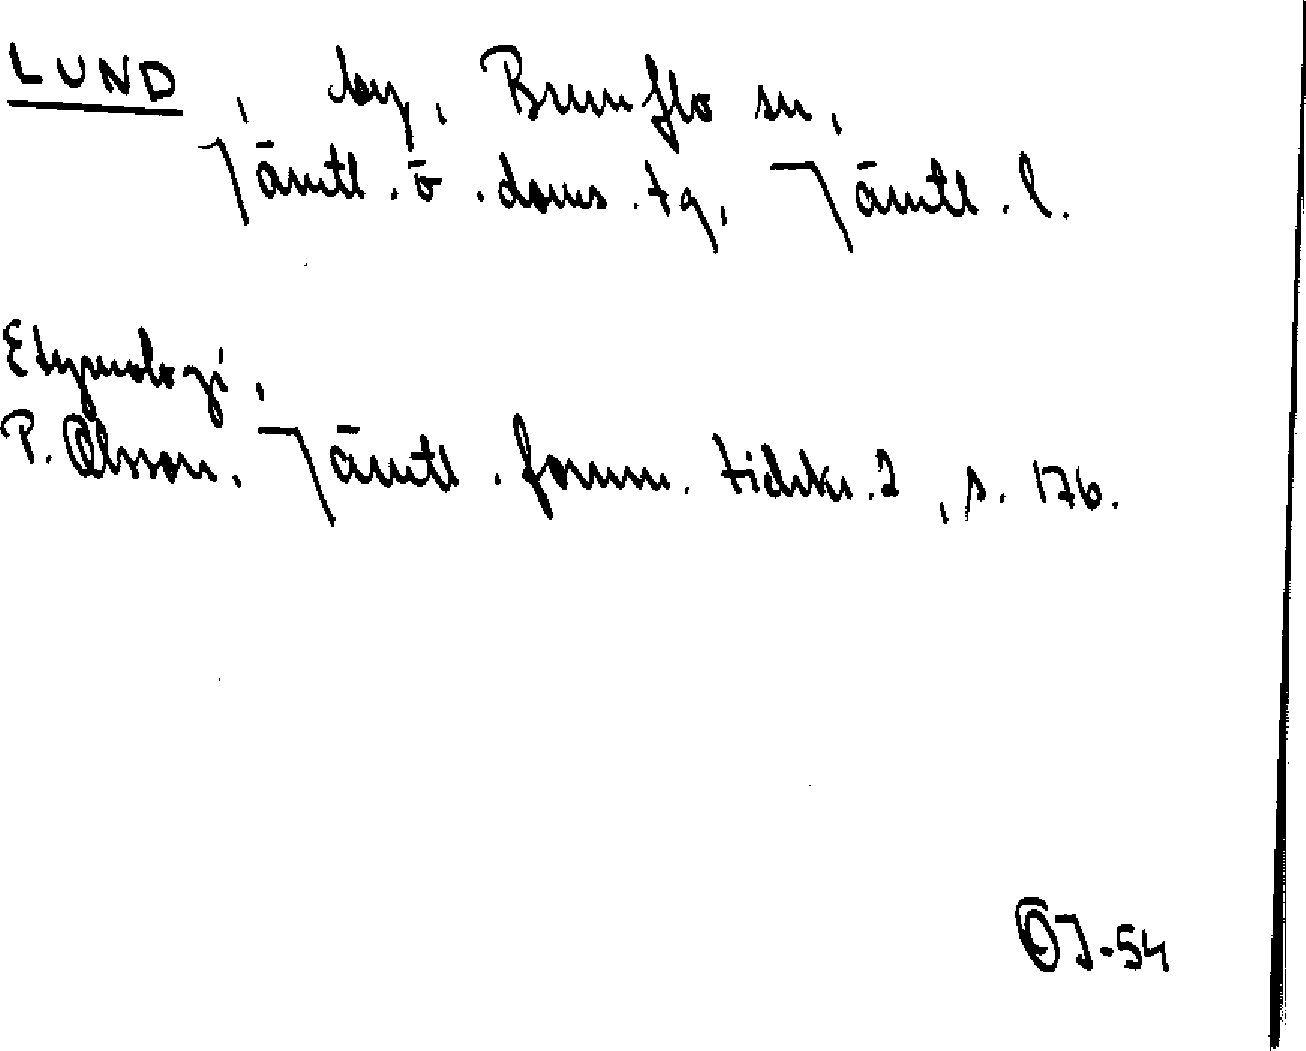 LUND, by, Brunflo sn,
Jämtl. ö. doms. tg, Jämtl. l.
Etymologi,
P. Olsson, Jämtl. fornm. tidskr. 2, s. 176.
OJ-54